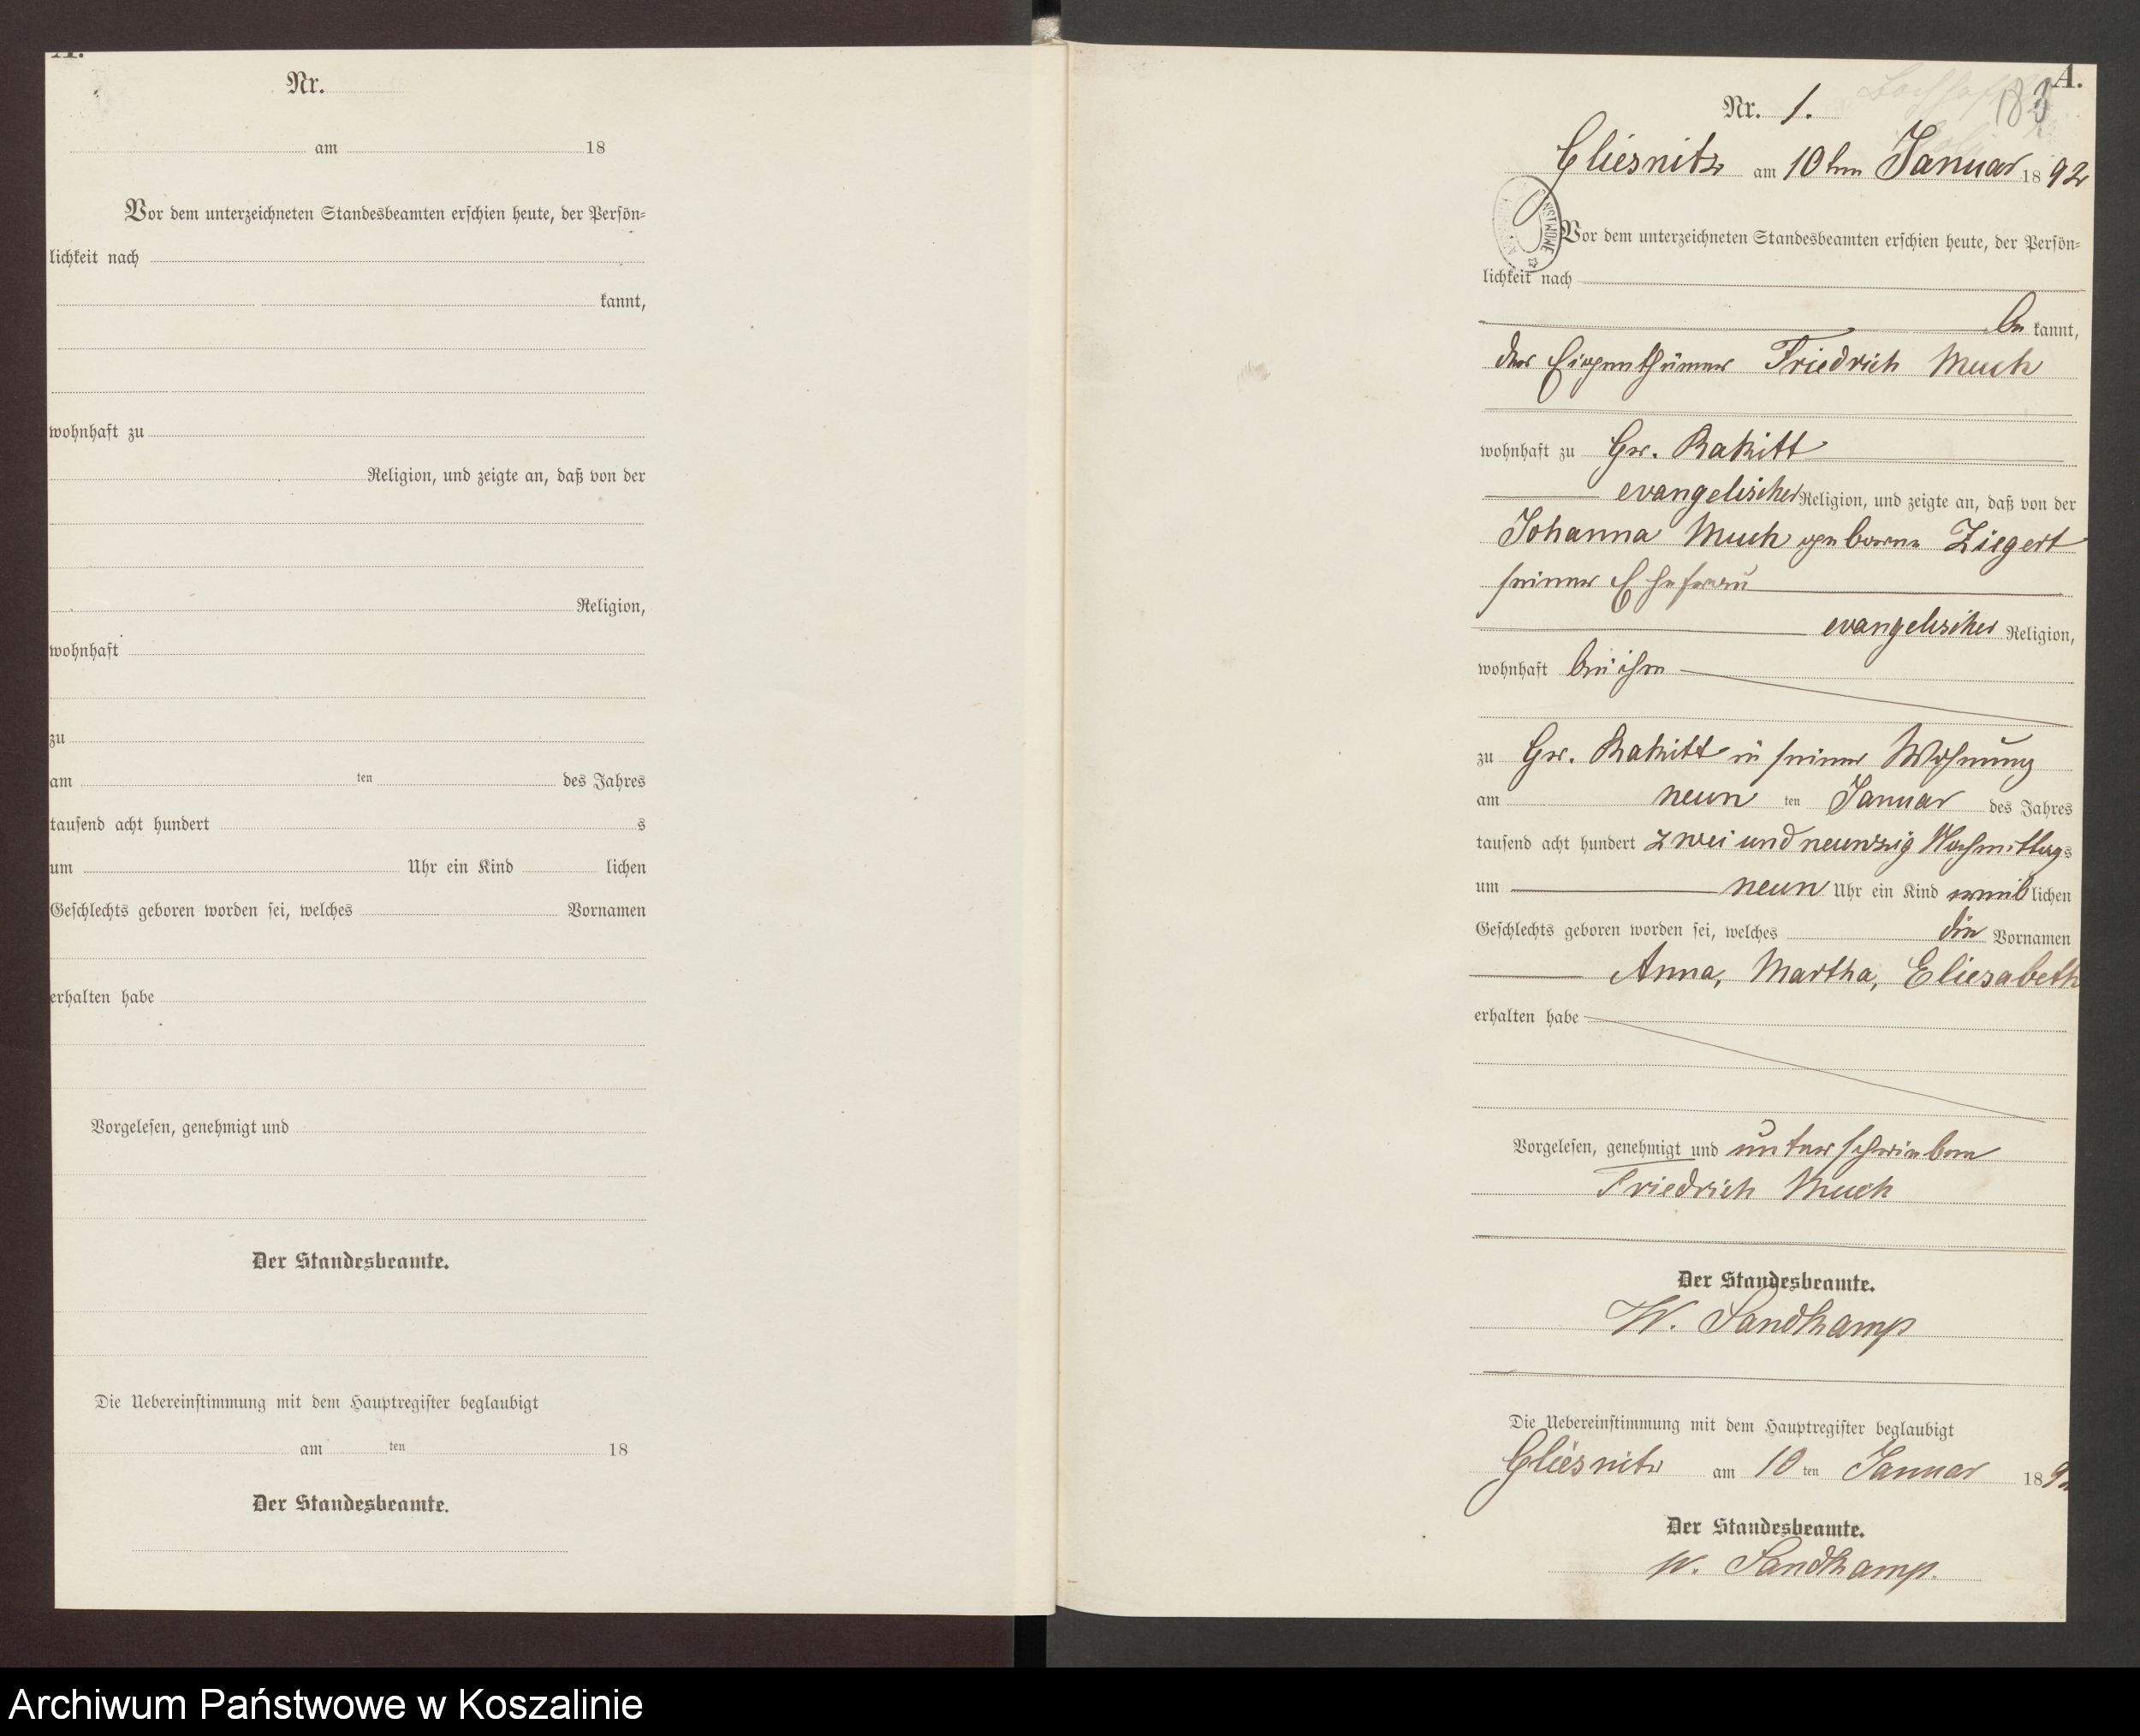 A.
Nr.
am 18
Vor dem unterzeichneten Standesbeamten erschien heute, der Persön=
lichkeit nach
kannt,
wohnhaft zu
Religion, und zeigte an, daß von der
Religion,
wohnhaft
zu
am ten des Jahres
tausend acht hundert s
um Uhr ein Kind lichen
Geschlechts geboren worden sei, welches Vornamen
erhalten habe
Vorgelesen, genehmigt und
Der Standesbeamte.
Die Uebereinstimmung mit dem Hauptregister beglaubigt
am ten 18
Der Standesbeamte.
A.
183
Nr. 1.
Gliesnitz am 10ten Januar 1892
Vor dem unterzeichneten Standesbeamten erschien heute, der Persön=
lichkeit nach
be kannt,
der Eigenthümer Friedrich Much
wohnhaft zu Gr. Rakitt
evangelischer Religion, und zeigte an, daß von der
Johanna Much geborene Ziegert
seiner Ehefrau
evangelischer Religion,
wohnhaft bei ihm
zu Gr. Rakitt in seiner Wohnung
am neun ten Januar des Jahres
tausend acht hundert zwei und neunzig Nachmittags
um neun Uhr ein Kind weiblichen
Geschlechts geboren worden sei, welches die Vornamen
Anna, Martha, Eliesabeth
erhalten habe
Vorgelesen, genehmigt und unterschrieben
Friedrich Much
Der Standesbeamte.
W. Sandkamp
Die Uebereinstimmung mit dem Hauptregister beglaubigt
Gliesnitz am 10 ten Januar 1892
Der Standesbeamte.
W. Sandkamp.
Archiwum Państwowe w Koszalinie